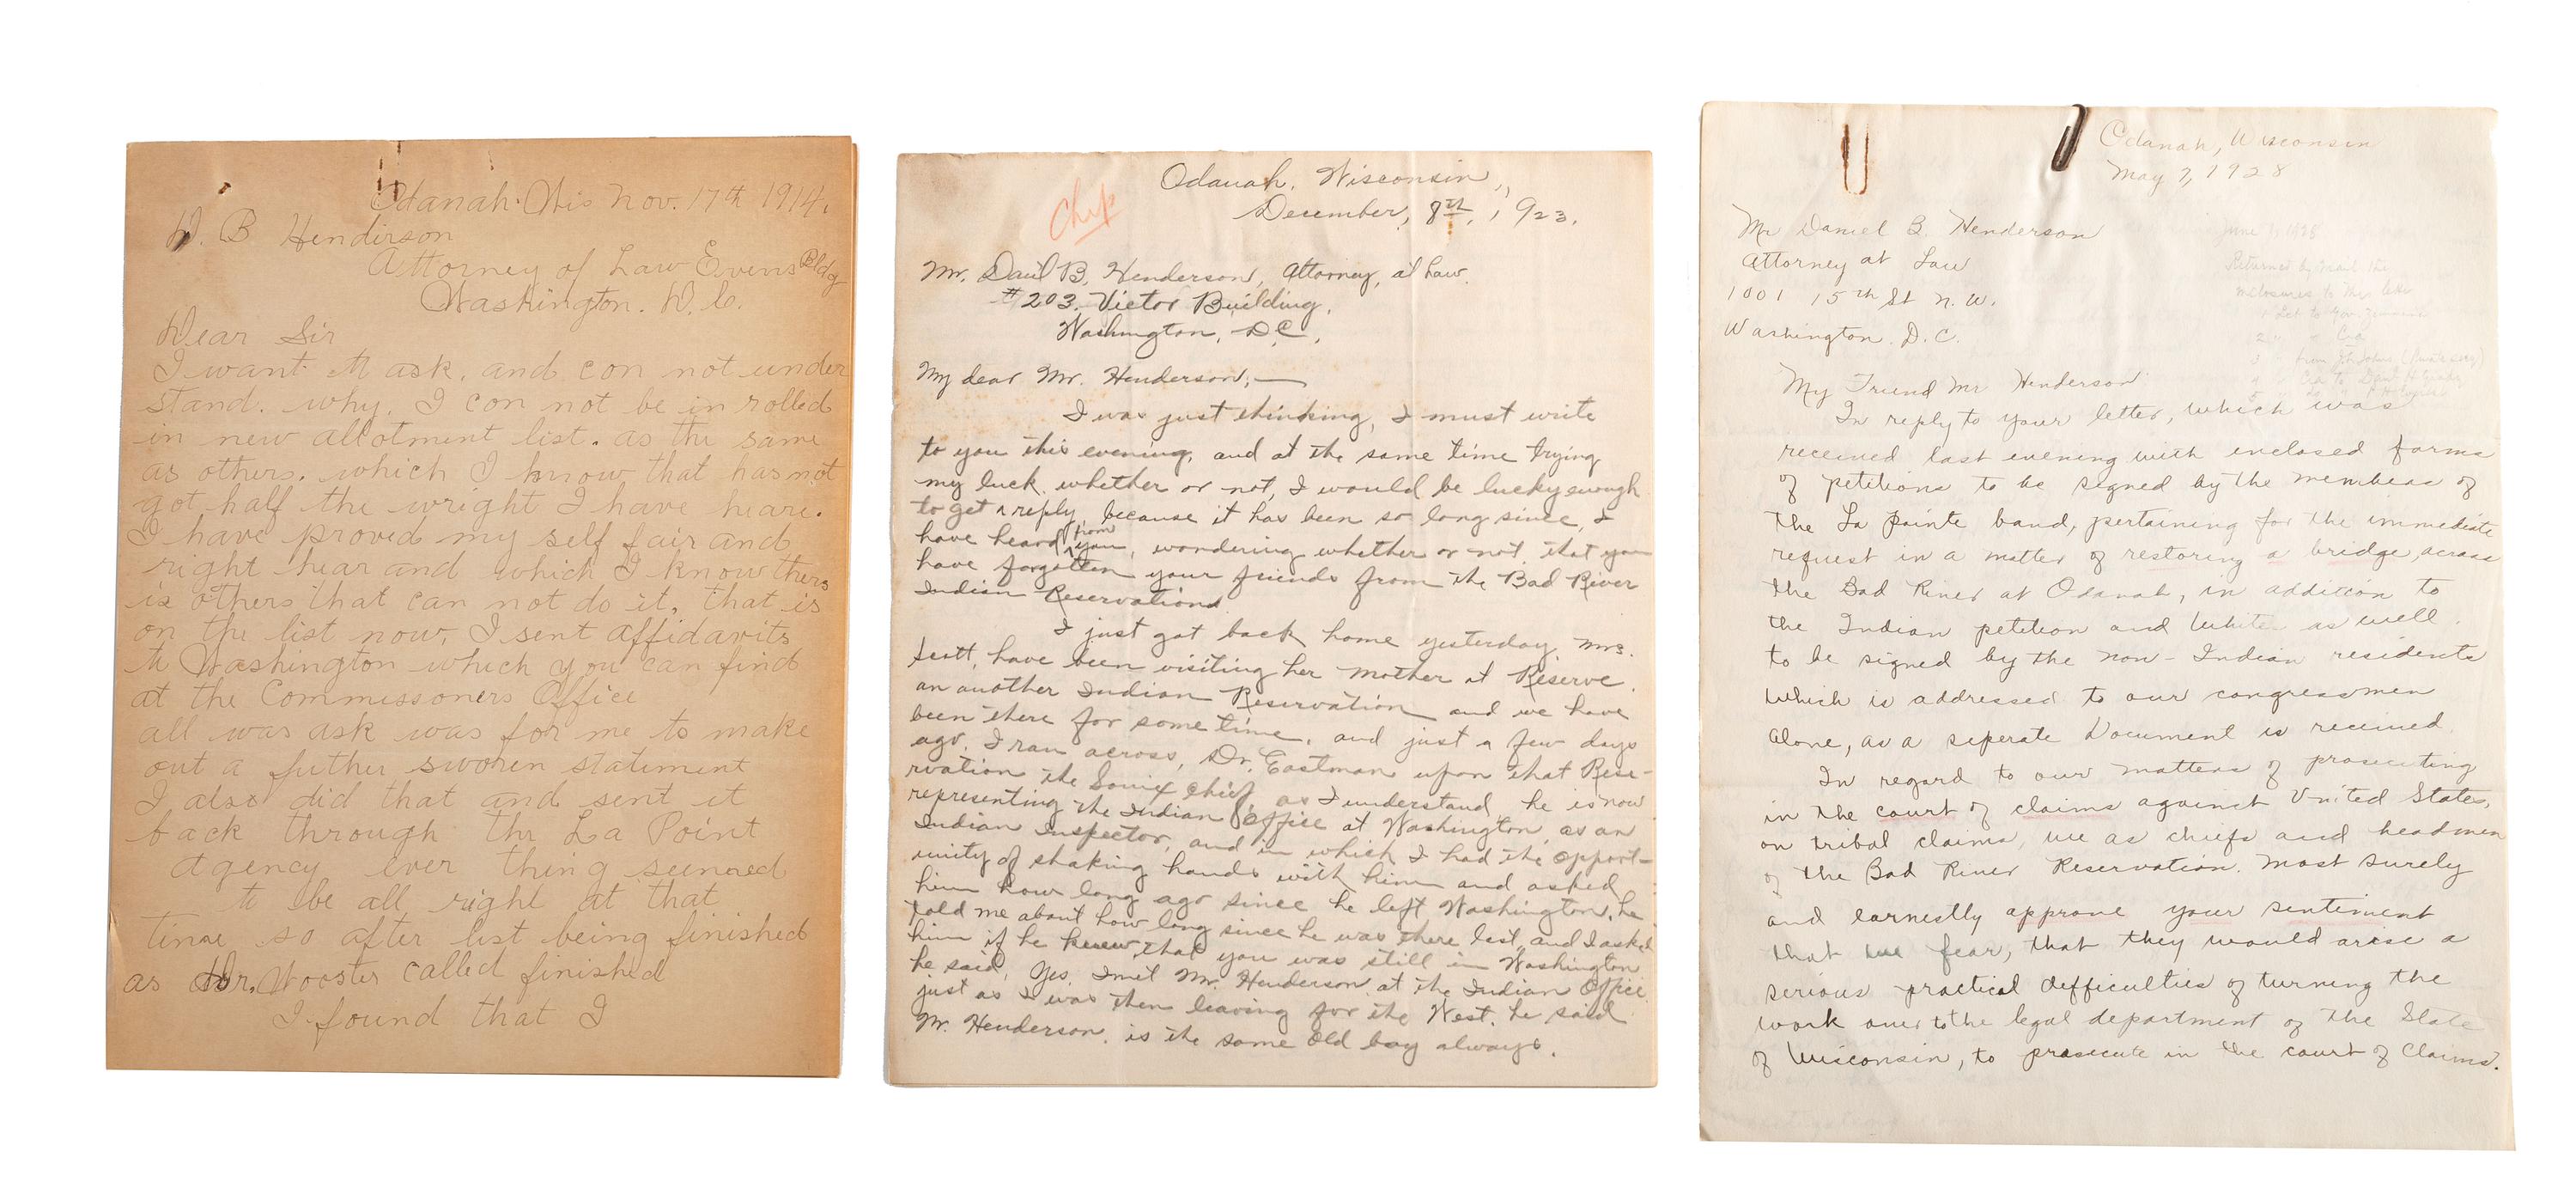 Odanah. Wis Nov. 17th 1914.
D. B Hendirson
Attorney of Law Evens Bldg
Washington. D. C.
Dear Sir
I want to ask. and con not under
stand. why. I con not be in rolled
in new allotment list. as the same
as others. which I know that has not
got half the wright I have heare.
I have proved my self fair and
right hear and which I know thers
is others that can not do it. that is
on the list now, I sent affidavits
to Washington which you can find
at the Commissoners Office
all was ask was for me to make
out a futher sworen statement
I also did that and sent it
back through the La Point
Agency ever thing seemed
to be all right at that
time so after list being finished
as Mr. Wooster called finished
I found that I
Chip
Odanah, Wisconsin,
December, 8th, 1923.
Mr. Danl B, Henderson, Attorney, at Law.
#203. Victor Building,
Washington, D.C.,
My dear Mr. Henderson;—
I was just thinking, I must write
to you this evening, and at the same time trying
my luck. whether or not, I would be lucky enough
to get a reply, because it has been so long since, I
have heard from you, wondering whether or not that you
have forgotten your friends from the Bad River
Indian Reservations.
I just got back home yesterday, Mrs.
Scott, have been visiting her mother at Reserve.
an another Indian Reservation and we have
been there for some time, and just a few days
ago, I ran across, Dr. Eastman upon that Rese-
rvation the Souix chief, as I understand he is now
representing the Indian Office at Washington, as an
Indian Inspector, and in which I had the opport-
unity of shaking hands with him and asked
him how long ago since he left Washington, he
told me about how long since he was there last, and I asked
him if he knew that you was still in Washington
he said, Yes, I met Mr. Henderson at the Indian Office
just as I was then leaving for the West. he said
Mr. Henderson, is the same old boy always.
Odanah, Wisconsin
May 7, 1928
Mr Daniel B. Henderson
Attorney at Law
1001 15th St N. W.
Washington. D.C.
June 1, 1928
Returned by mail the
enclosures to this letter
My Friend Mr Henderson
In reply to your letter, which was
received last evening with enclosed forms
of petitions to be signed by the members of
the La Pointe band, pertaining for the immediate
request in a matter of restoring a bridge across
the Bad River at Odanah, in addition to
the Indian petition and White as well.
to be signed by the non-Indian residents
which is addressed to our congressmen
alone, as a seperate Document is received.
In regard to our matters of prosecuting
in the court of claims against United States,
on tribal claims, we as chiefs and headmen
of the Bad River Reservation. most surely
and earnestly approve your sentiment
that we fear, that they would arise a
serious practical defficulties of turning the
work over to the legal department of the State
of Wisconsin, to prosecute in the court of Claims.